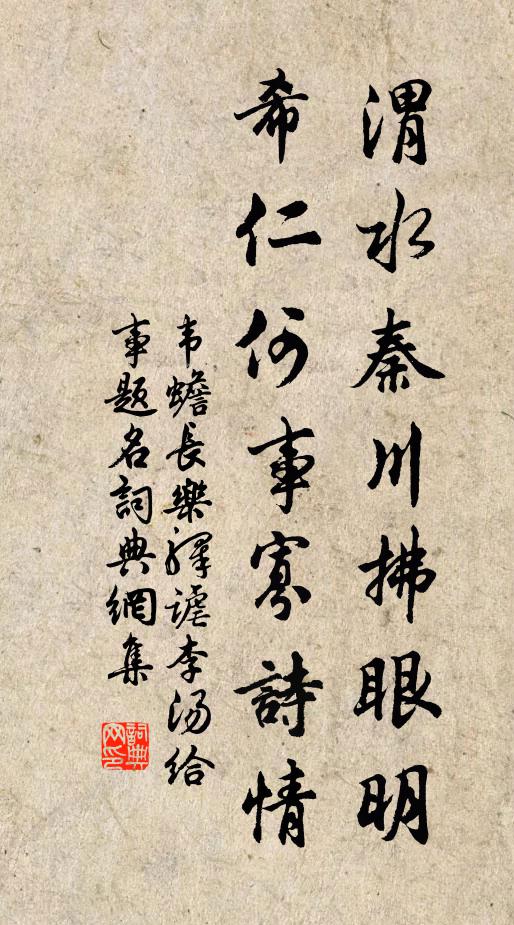 渭水秦川拂眼明
希仁何事寡詩情
韦蟾長樂驛謔李湯给
事題名詞典網集
詞典
网印